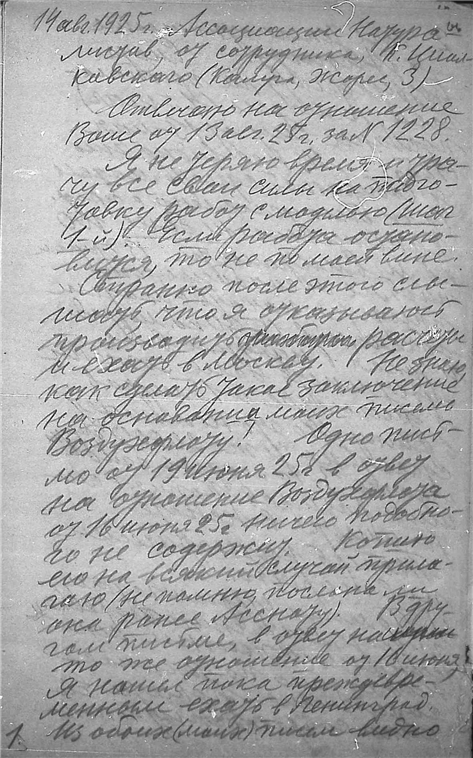 14 авг. 1925г. Ассоциации Натура-
листов, от сотрудника, К. Циол-
ковского (Калуга, Жорес, 3)
Отвечаю на отношение
Ваше от 13 авг. 25г. за N 1228.
Я не теряю время и тра-
чу все свои силы на подго-
товку работ с моделью (шаг
1-й). Если работа остано-
вится, то не по моей вине.
Странно после этого слы-
шать что я отказываюсь
производить расчеты
и ехать в Москву. Не знаю,
как сделать такое заключение
на основании моих писем
Воздухфлоту! Одно пись-
мо от 19 июня 25г в ответ
на отношение Воздухфлота
от 16 июня 25г ничего подобно-
го не содержит. Копию
его на всякий случай прила-
гаю (не помню, послана ли
она ранее Асснату). В дру-
гом письме, в ответ на
то же отношение от 16 июня,
Я нашел пока преждевре-
менным ехать в Ленинград.
Из обоих (моих) писем видно
1.